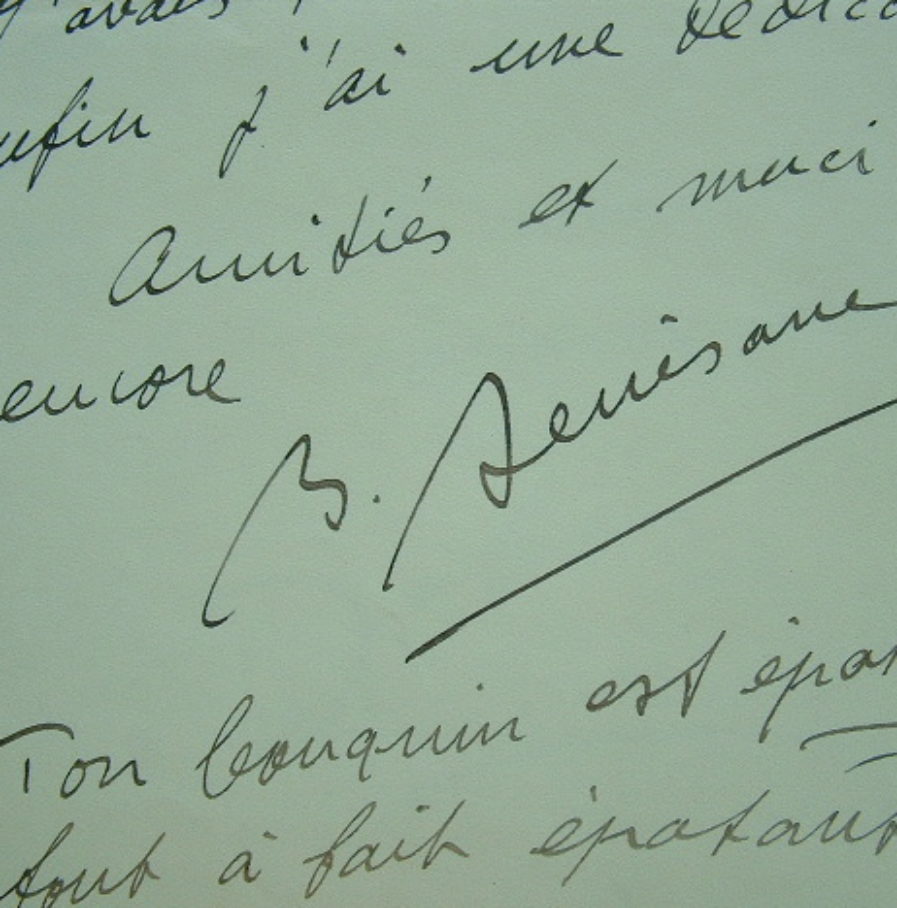 j'avais
enfin j'ai une dédica
Amitiés et merci
encore
B.
Ton bouquin est épat
tout à fait épatant